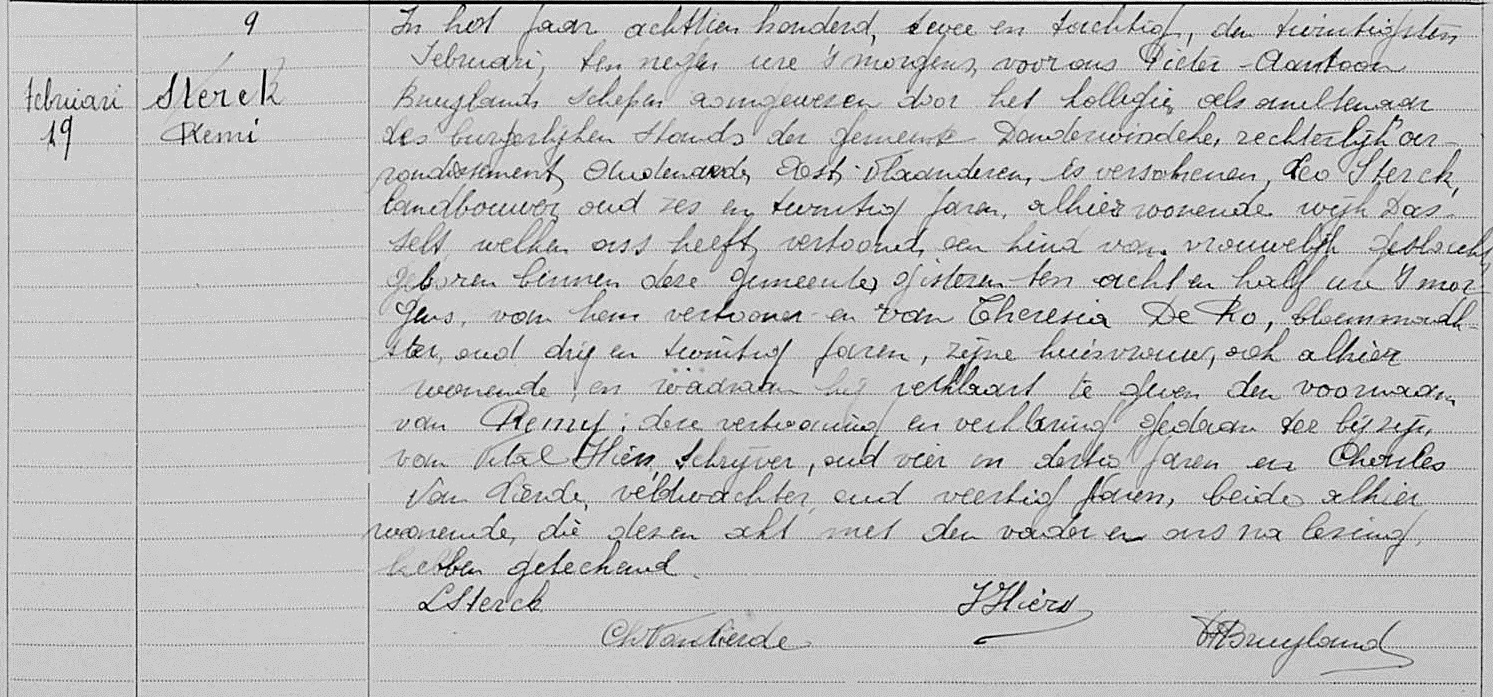 9
Februari
19
Sterck
Remi
In het jaar achttien honderd, twee en tachtig, den twintigsten
Februari, ten negen ure 's morgens, voor ons Pieter - Aantoon
Bruylands Schepen aangewesen door het kollegie als ambtenaar
des burgerlijken Stands der gemeente Denderwindeke, rechterlijk ar-
rondissement, Audenaarde, Oost-Vlaanderen, is verschenen, Leo Sterck,
landbouwer, oud zes en twintig jaren, alhier wonende wijk Das-
selt, welken ons heeft vertoond een kind van vrouwelijk geslacht,
geboren binnen deze gemeente, gisteren ten acht en half ure 's mor-
gens, van hem vertooner en van Theresia De Ro, bloemmaak-
ster, oud drij en twintig jaren, zijne huisvrouw, ook alhier
wonende en waaraan hij verklaart te geven den voornaam
van Remy; deze vertooning en verklaring gedaan ter bijzijn
van Vital Hiers, Schrijver, oud vier en dertig jaren en Charles
Van Lierde, veldwachter, oud veertig jaren, beide alhier
wonende, die dezen akt met den vader en ons na lezing,
hebben geteekend.
LSterck
Ch Van Lierde
VHiers
Bruyland